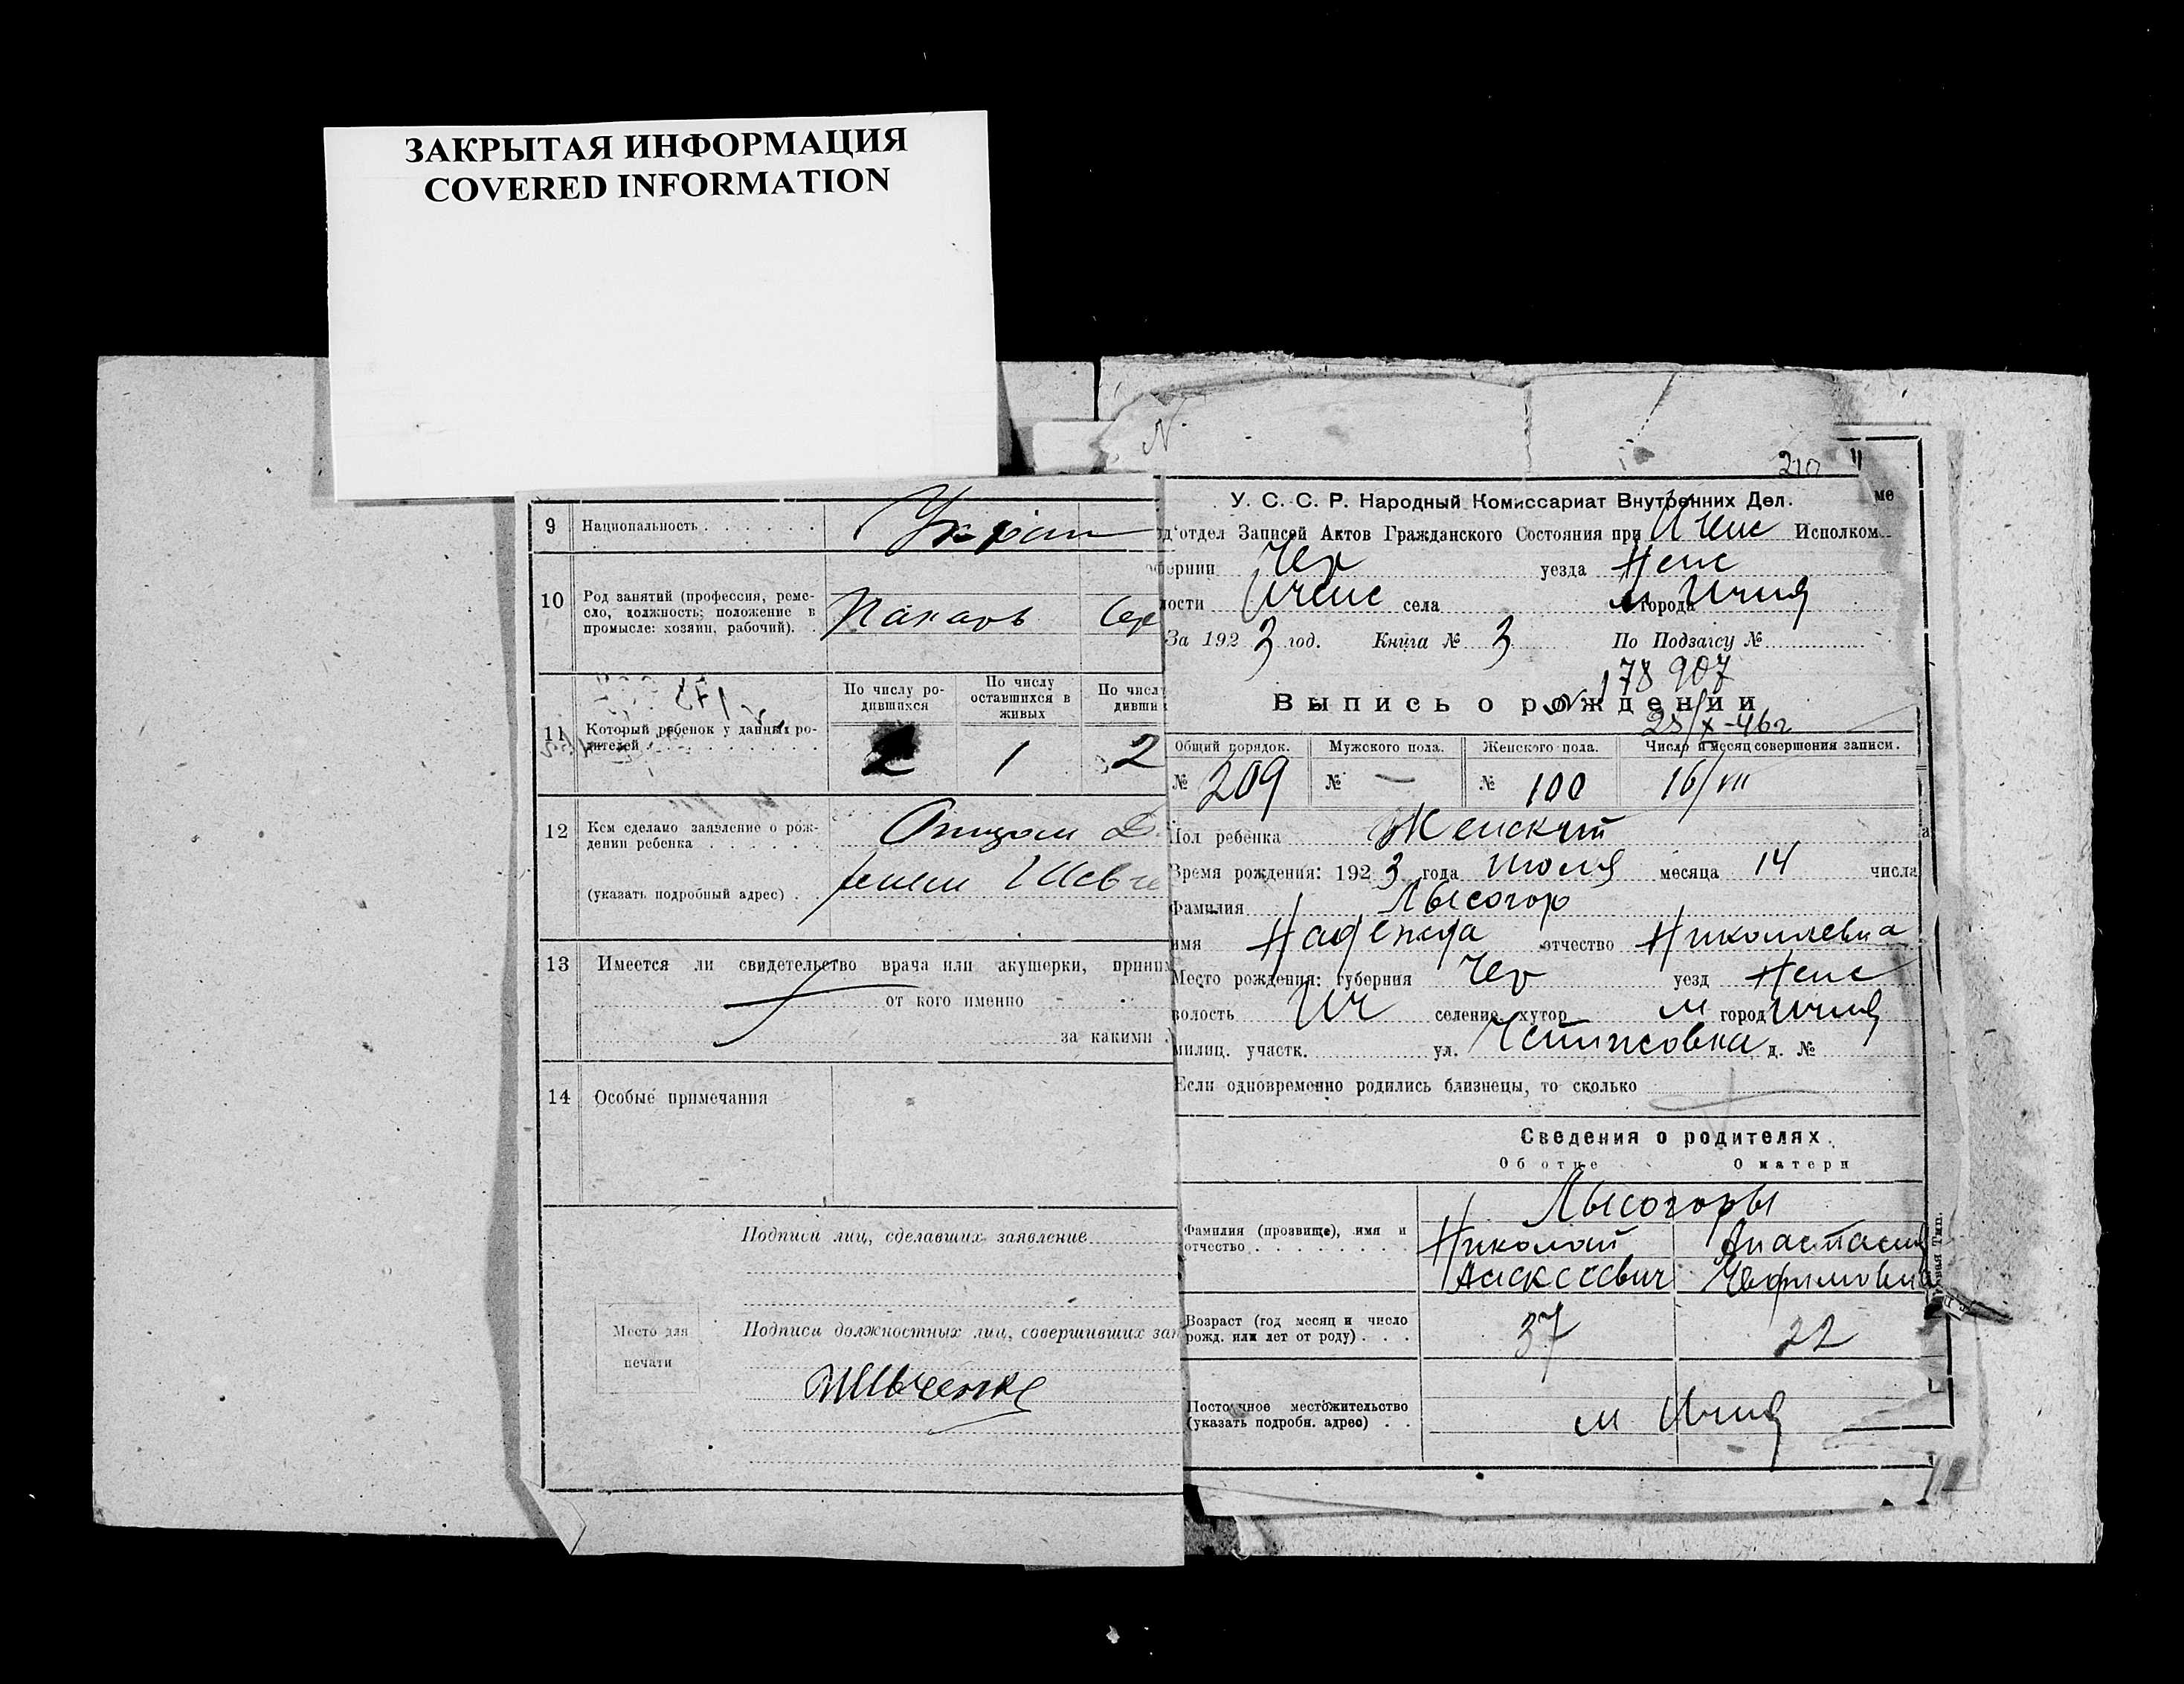 ЗАКРЫТАЯ ИНФОРМАЦИЯ
COVERED INFORMATION
9 Национальность
10 Род занятий (профессия, реме-
сло, должность; положение в
промысле: хозяин, рабочий).
По числу ро-
дившихся
По числу
оставшихся в
живых
11 Который ребенок у данных ро-
дителей
2 1 2
12 Кем сделано заявление о рож-
дении ребенка
(указать подробный адрес)
13 Имеется ли свидетельство врача или акушерки,
от кого именно
за какими
14 Особые примечания
Подписи лиц, сделавших заявление
Место для
печати
Подписи должностных лиц, совершивших
210
У. С. С. Р. Народный Комиссариат Внутренних Дел.
отдел Записей Актов Гражданского Состояния при Ичнс Исполком
Чер уезда Неж
села м города Ичня
За 1923 год. Книга № 3 По Подзагсу №
№ 178907
Выпись о рождении
25/X-46г
Общий порядок. Мужского пола. Женского пола. Число и месяц совершения записи.
№ 209 № — № 100 16/VII
Пол ребенка Женский
Время рождения: 1923 года июля месяца 14 числа
Фамилия Лысогор
имя Надежда отчество Николаевна
Место рождения: губерния Чер уезд Неж
волость Ич селение, хутор м город Ичня
милиц. участк. ул. д. №
Если одновременно родились близнецы, то сколько
Сведения о родителях.
Об отце О матери
Лысогоры
Фамилия (прозвище), имя и
отчество
Николай Анастасия
Алексеевич
Возраст (год месяц и число
рожд. или лет от роду)
37 22
Постоянное местожительство
(указать подробн. адрес)
м Ичня